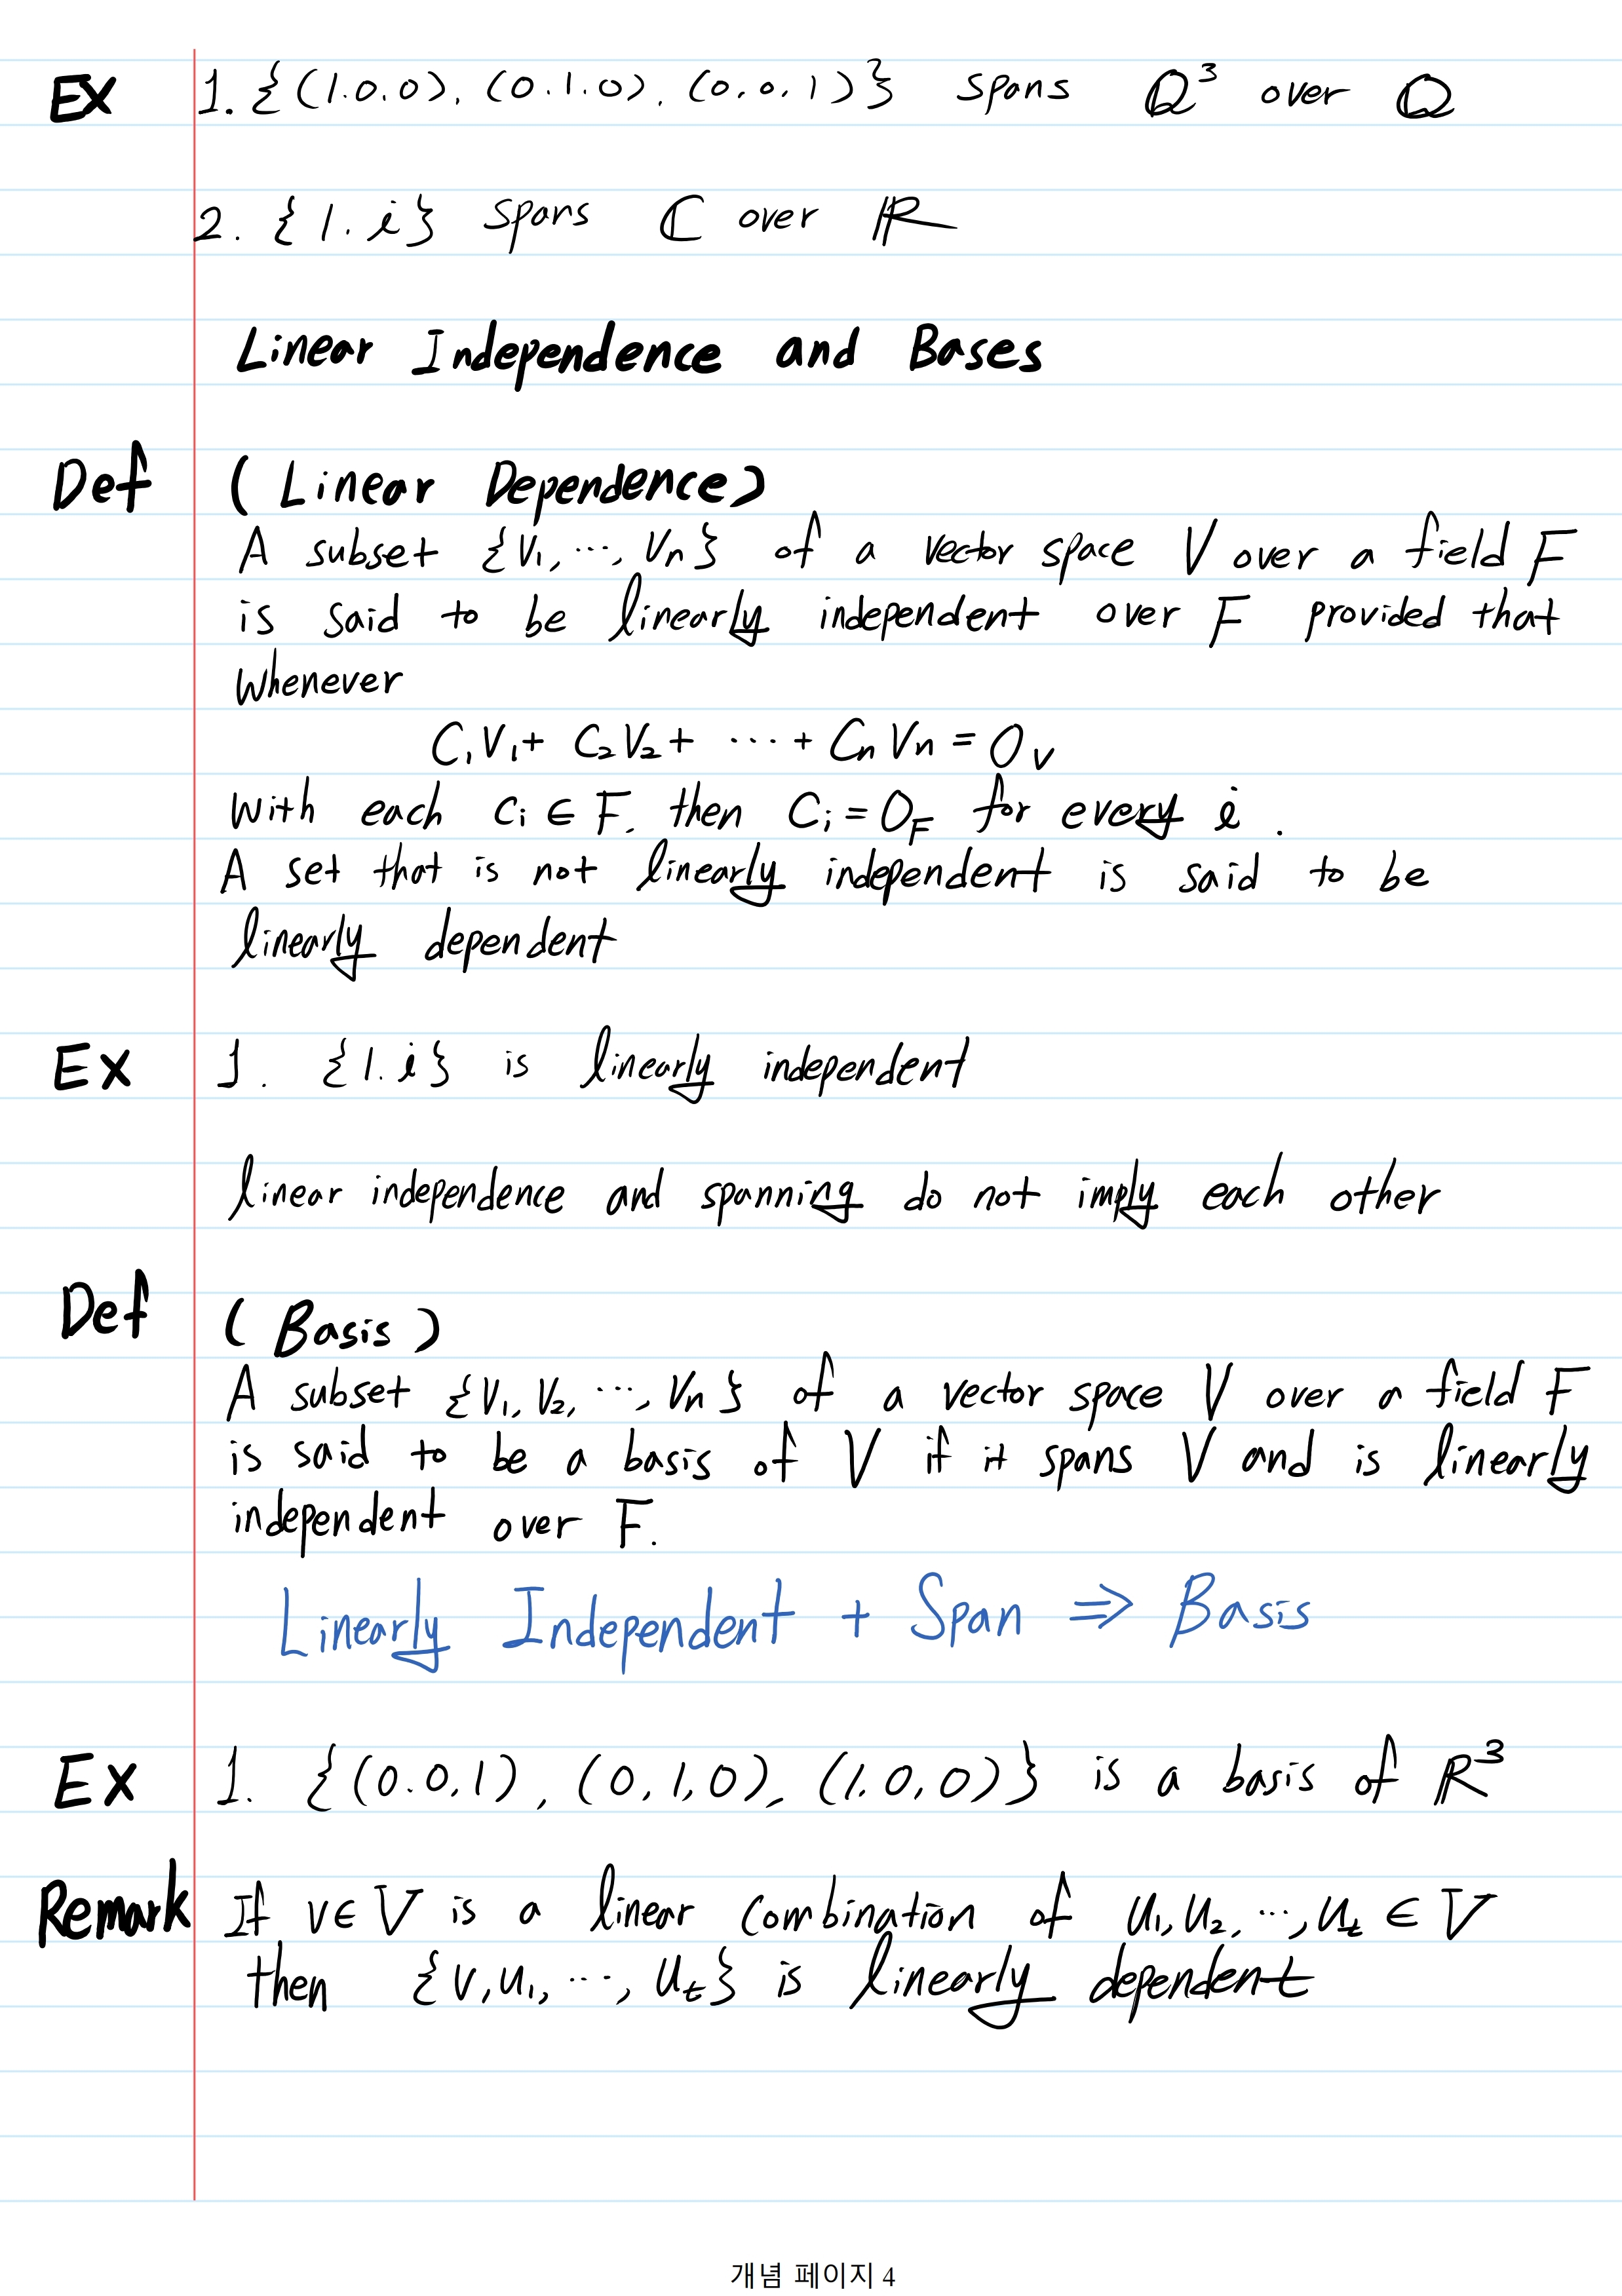 Ex 1. {(1.0.0), (0.1.0), (0,0,1)} spans ℚ³ over ℚ
2. {1.i} spans ℂ over ℝ
Linear Independence and Bases
Def (Linear Dependence)
A subset {v₁, ⋯, vₙ} of a vector space V over a field F
is said to be linearly independent over F provided that
whenever
C₁V₁ + C₂V₂ + ⋯ + CₙVₙ = 0ᵥ
with each cᵢ ∈ F. then Cᵢ = 0_F for every i.
A set that is not linearly independent is said to be
linearly dependent
Ex 1. {1.i} is linearly independent
linear independence and spanning do not imply each other
Def (Basis)
A subset {v₁, v₂, ⋯, vₙ} of a vector space V over a field F
is said to be a basis of V if it spans V and is linearly
independent over F.
Linearly Independent + Span ⇒ Basis
Ex 1. {(0.0,1), (0,1,0), (1,0,0)} is a basis of ℝ³
Remark If v ∈ V is a linear combination of u₁, u₂, ⋯, uₜ ∈ V
then {v, u₁, ⋯, uₜ} is linearly dependent
개념 페이지 4